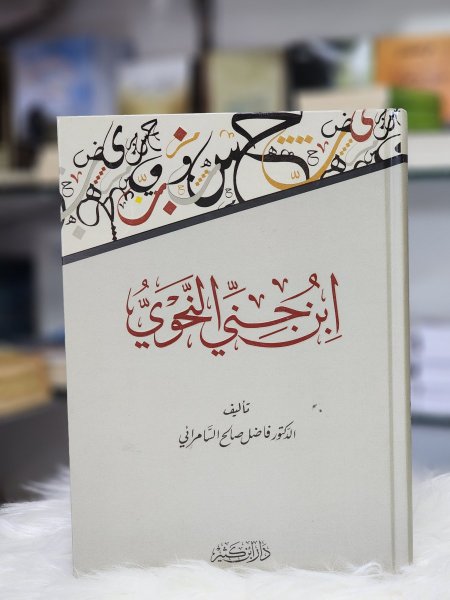 ابْن جِنِّي النَّحْوِيُّ
تأليف
الدكتور فاضل صالح السامرائي
دار ابن كثير